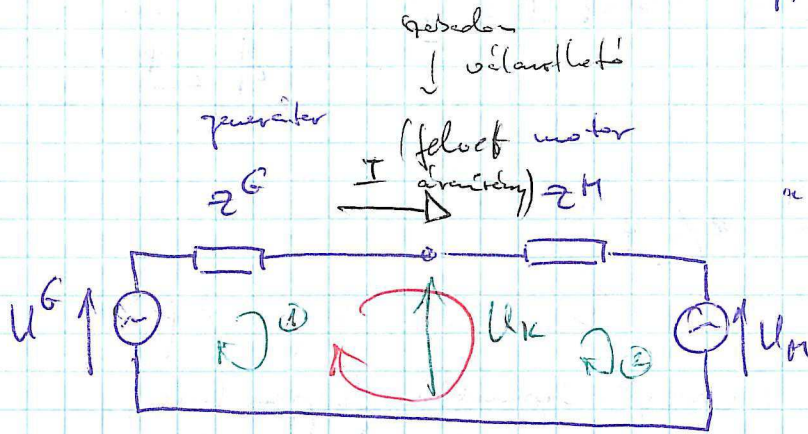 szabadon
↓ választható
generátor
(felvett motor
I áramirány)
Z^G Z^M
U^G ① U_K ② U_M